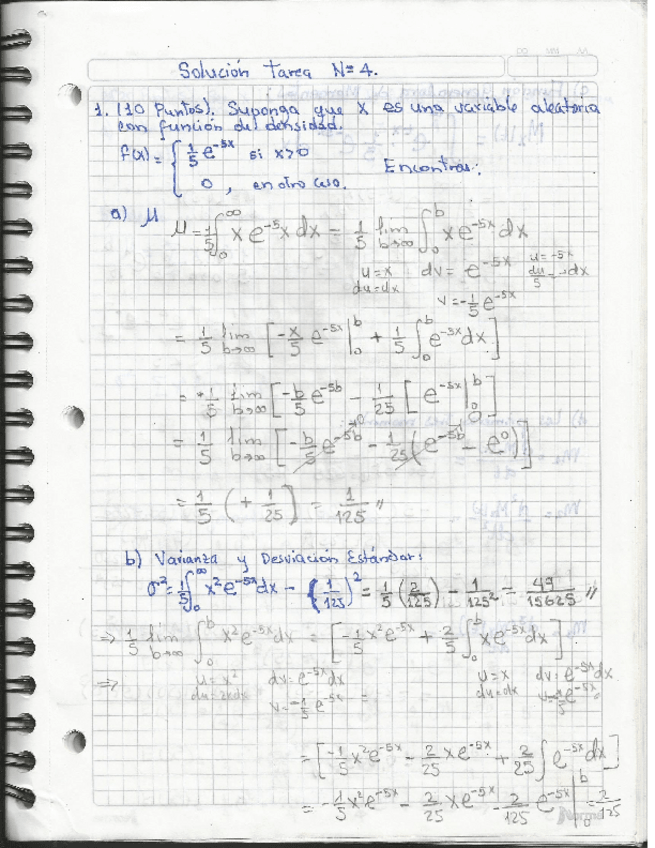 Solución Tarea Nº 4.
1. (10 Puntos). Suponga que X es una variable aleatoria
con función de densidad.
f(x) = { 1/5 e^-5x si x>0
0 , en otro caso. Encontrar:
a) μ
μ = 1/5 ∫_0^∞ x e^-5x dx = 1/5 lim b→∞ ∫_0^b x e^-5x dx
u = x dv = e^-5x u = -5x
du = dx du/5 = -dx
v = -1/5 e^-5x
= 1/5 lim b→∞ [ -x/5 e^-5x |_0^b + 1/5 ∫_0^b e^-5x dx ]
= 1/5 lim b→∞ [ -b/5 e^-5b - 1/25 [ e^-5x |_0^b ]
= 1/5 lim b→∞ [ -b/5 e^-5b - 1/25 ( e^-5b - e^0 ) ]
= 1/5 ( + 1/25 ] = 1/125 //
b) Varianza y Desviación Estándar:
σ² = 1/5 ∫_0^∞ x² e^-5x dx - (1/125)² = 1/5 (2/125) - 1/125² = 49/15625 //
⇒ 1/5 lim b→∞ ∫_0^b x² e^-5x dx = [ -1/5 x² e^-5x + 2/5 ∫_0^b x e^-5x dx ]
⇒ u = x² dv = e^-5x dx u = x dv = e^-5x dx
du = 2x dx v = -1/5 e^-5x = du = dx v = -1/5 e^-5x
= [ -1/5 x² e^-5x - 2/25 x e^-5x + 2/25 ∫ e^-5x dx ]
= -1/5 x² e^-5x - 2/25 x e^-5x - 2/125 e^-5x |_0^b = 2/125